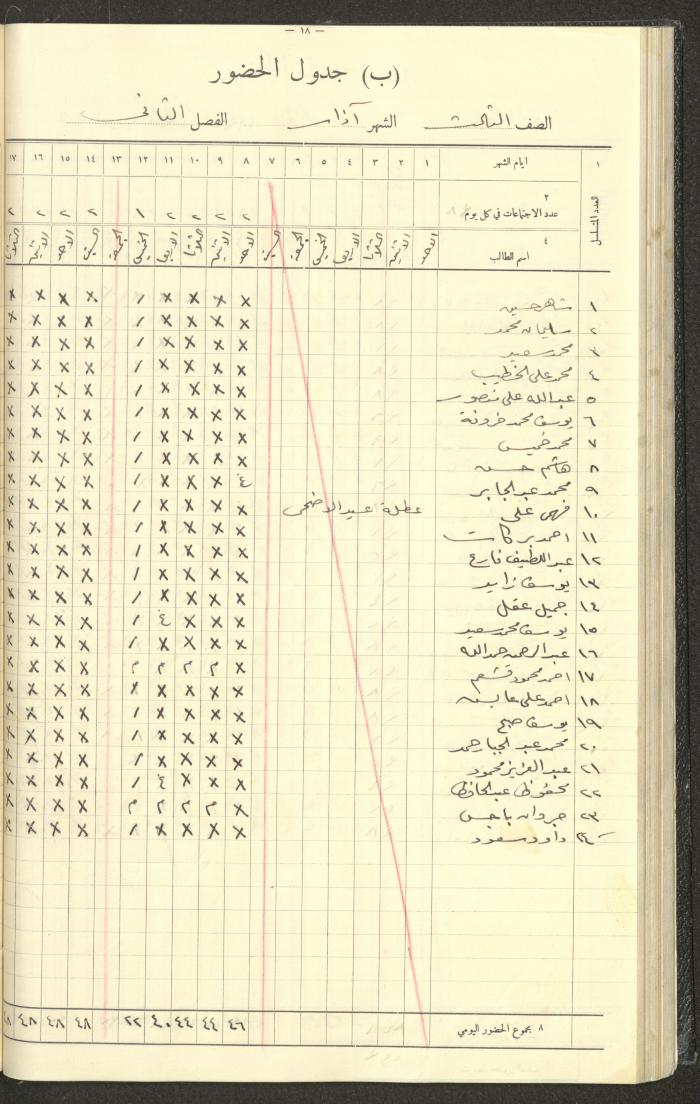 — ١٨ —
(ب) جدول الحضور
الصف الثالث الشهر آذار الفصل الثاني
١ ايام الشهر ١ ٢ ٣ ٤ ٥ ٦ ٧ ٨ ٩ ١٠ ١١ ١٢ ١٣ ١٤ ١٥ ١٦ ١٧
العدد المتسلسل
٢ عدد الاجتماعات في كل يوم ٢ ٢ ٢ ٢ ١ ٢ ٢ ٢ ٢
٤ اسم الطالب الاحد الاثنين الثلاثا الاربعا الخميس الجمعة السبت الاحد الاثنين الثلاثا الاربعا الخميس الجمعة السبت الاحد الاثنين الثلاثا
١ شاهر حسين x x x x / x x x x
٢ سليمان محمد x x x x / x x x x
٣ محمد سعيد x x x x / x x x x
٤ محمد علي الخطيب x x x x / x x x x
٥ عبدالله علي منصور x x x x / x x x x
٦ يوسف محمد x x x x / x x x x
٧ محمد خميس x x x x / x x x x
٨ هاشم حسن x x x x / x x x x
٩ محمد عبد الجابر ٤ x x x / x x x x
١٠ فهمي علي عطلة عيد الاضحى x x x x / x x x x
١١ احمد بركات x x x x / x x x x
١٢ عبد اللطيف فارع x x x x / x x x x
١٣ يوسف زايد x x x x / x x x x
١٤ جميل عقل x x x x / x x x x
١٥ يوسف محمد سعيد x x x ٤ / x x x x
١٦ عبد الرحمن حمدالله x x x x / x x x x
١٧ احمد محمود قشعم x م م م م x x x x
١٨ احمد علي عابس x x x x / x x x x
١٩ يوسف صبح x x x x / x x x x
٢٠ محمد عبد الجبار حمد x x x x / x x x x
٢١ عبد العزيز محمود x x x x / x x x x
٢٢ محفوظ عبد الحافظ x x x ٤ / x x x x
٢٣ x م م م م x x x x
٢٤ داود سعود x x x x / x x x x
٨ مجموع الحضور اليومي ٤٦ ٤٤ ٤٤ ٤٠ ٢٢ ٤٨ ٤٨ ٤٨